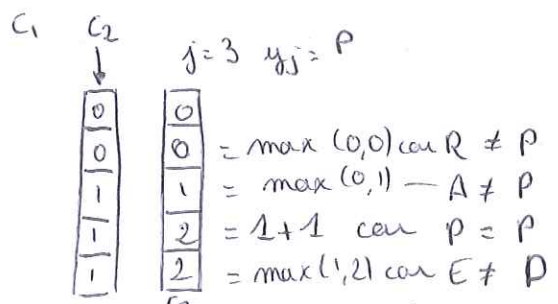 C1 C2
j=3 yj= P
0 0
0 0 = max (0,0) car R ≠ P
1 1 = max (0,1) — A ≠ P
1 2 = 1+1 car P = P
1 2 = max(1,2) car E ≠ P